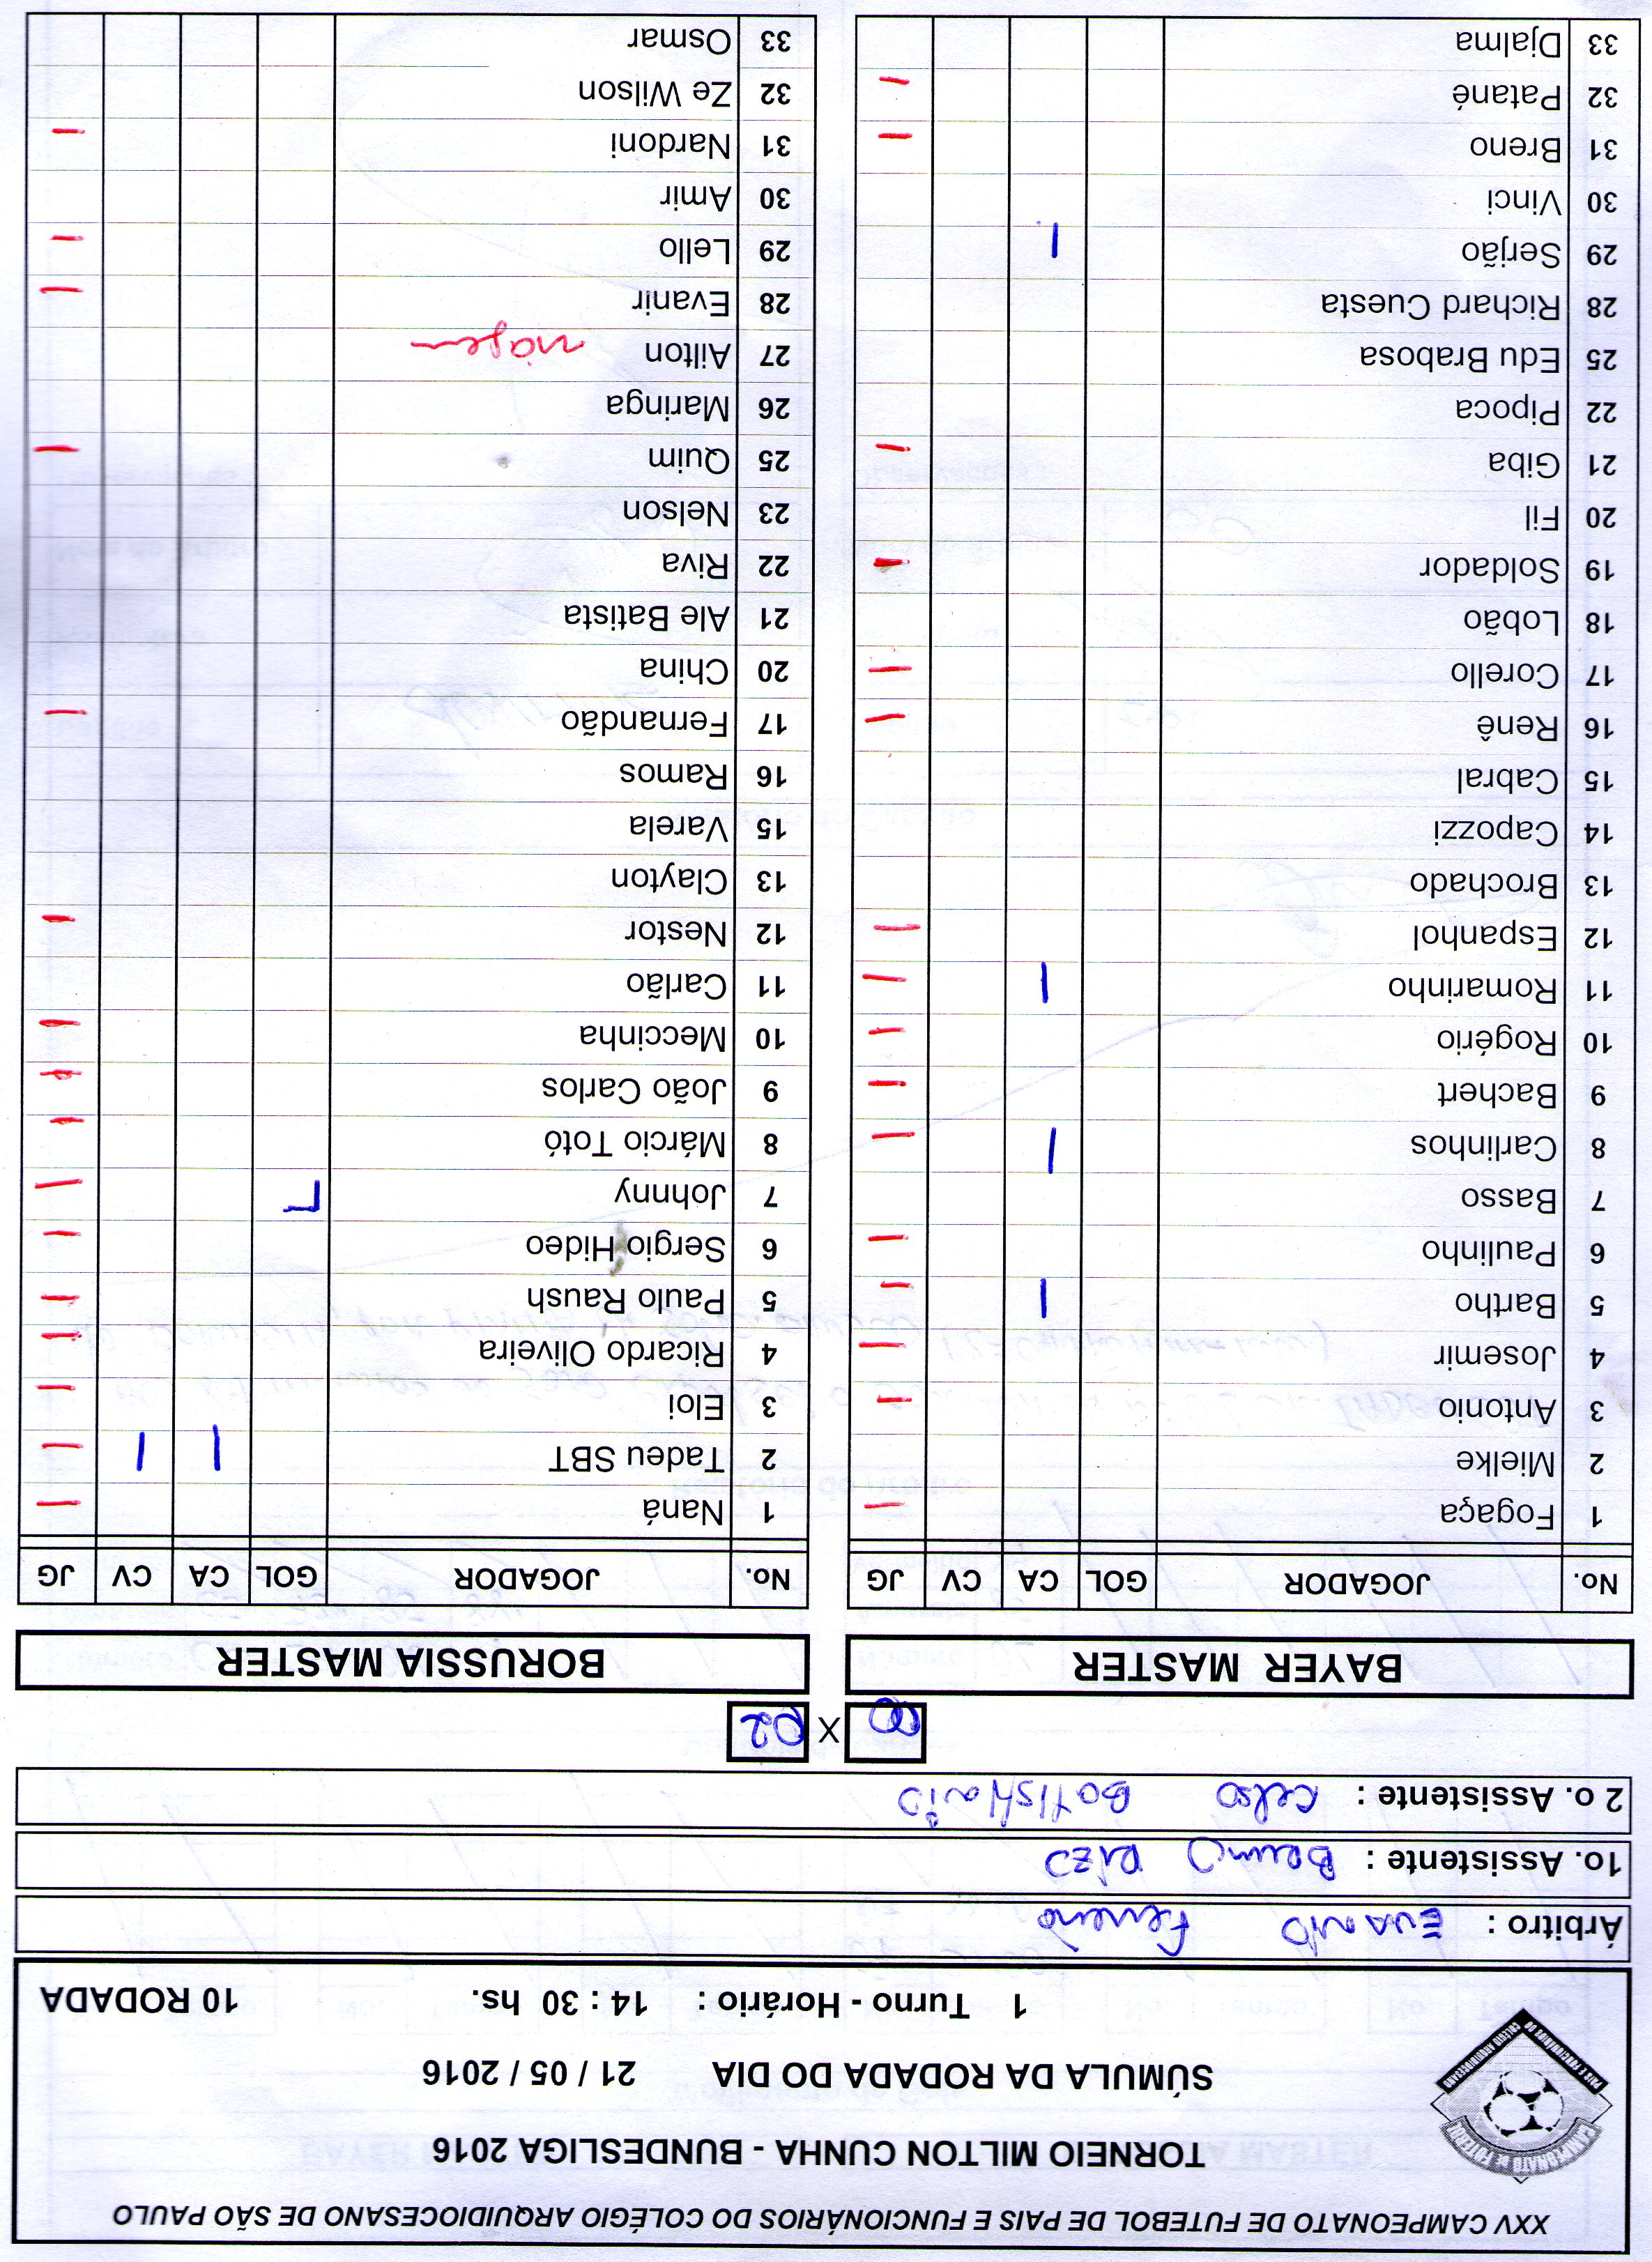 XXV CAMPEONATO DE FUTEBOL DE PAIS E FUNCIONÁRIOS DO COLÉGIO ARQUIDIOCESANO DE SÃO PAULO
TORNEIO MILTON CUNHA - BUNDESLIGA 2016
SÚMULA DA RODADA DO DIA 21 / 05 / 2016
1 Turno - Horário : 14 : 30 hs. 10 RODADA
Árbitro : Ferreira
1o. Assistente : Bruno Rizo
2 o. Assistente : Celso
00 X 02
BAYER MASTER BORUSSIA MASTER
No. JOGADOR GOL CA CV JG No. JOGADOR GOL CA CV JG
1 Fogaça 1 Naná
2 Mielke 2 Tadeu SBT
3 Antonio 3 Eloi
4 Josemir 4 Ricardo Oliveira
5 Bartho 5 Paulo Raush
6 Paulinho 6 Sergio Hideo
7 Basso 7 Johnny
8 Carlinhos 8 Márcio Totó
9 Bachert 9 João Carlos
10 Rogério 10 Meccinha
11 Romarinho 11 Carlão
12 Espanhol 12 Nestor
13 Brochado 13 Clayton
14 Capozzi 15 Varela
15 Cabral 16 Ramos
16 Renê 17 Fernandão
17 Corello 20 China
18 Lobão 21 Ale Batista
19 Soldador 22 Riva
20 Fil 23 Nelson
21 Giba 25 Quim
22 Pipoca 26 Maringa
25 Edu Brabosa 27 Ailton
28 Richard Cuesta 28 Evanir
29 Serjão 29 Lello
30 Vinci 30 Amir
31 Breno 31 Nardoni
32 Patané 32 Ze Wilson
33 Djalma 33 Osmar